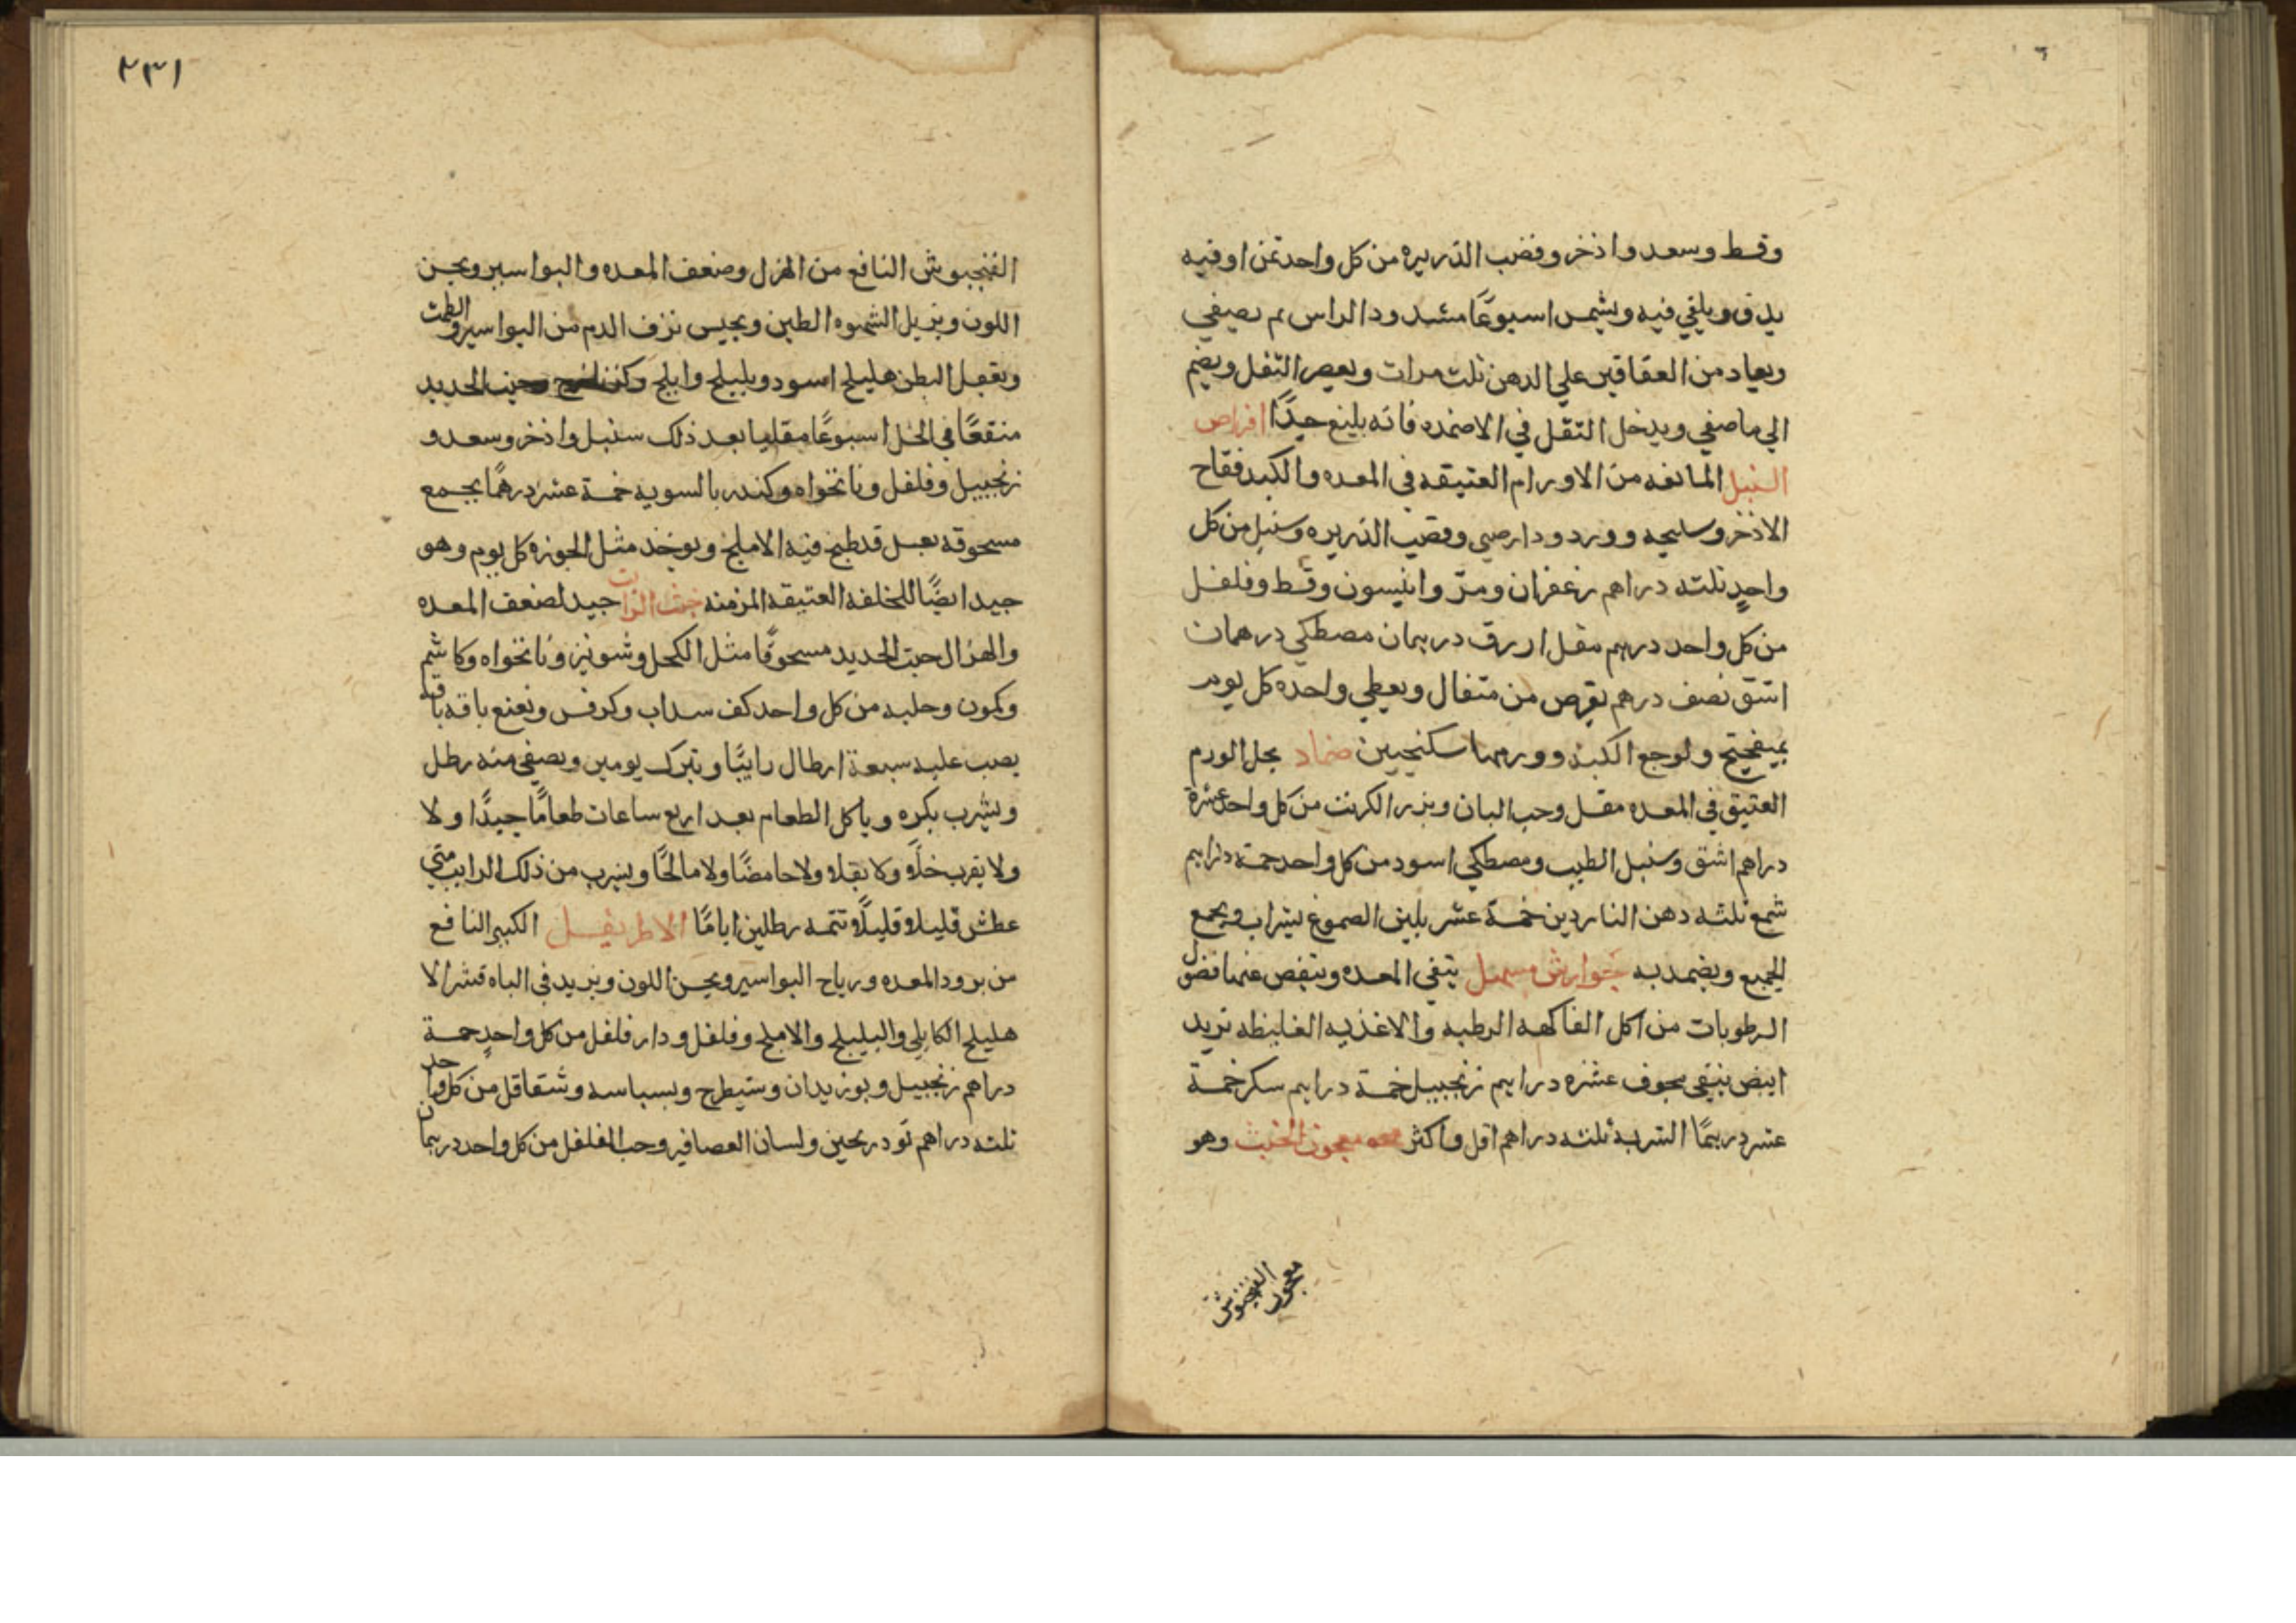 وقسط وسعد واذخر وقضب الذريره من كل واحد ثمن اوقيه
يدق ويلقي فيه ويشمس اسبوعًا مشدود الراس ثم يصفي
ويعاد من العقاقير علي الدهن ثلث مرات ويعصر الثفل ويضم
الي ما صفي ويدخل الثفل في الاضمده فانه بليغ جيدًا اقراص
السنبل المانعه من الاورام العتيقه في المعده والكبد فقاح
الاذخر وسليخه وورد ودارصيني وقصب الذريره وسنبل من كل
واحدٍ ثلثه دراهم زعفران ومرّ وانيسون وقسط وفلفل
من كل واحد درهم مقل ازرق درهمان مصطكي درهمان
اشق نصف درهم يقرص من مثقال ويعطي واحده كل يوم
بميفختج ولوجع الكبد وورمها سكنجبين ضماد يحل الورم
العتيق في المعده مقل وحب البان وبزر الكرنب من كل واحد عشرة
دراهم اشق وسنبل الطيب ومصطكي اسود من كل واحد خمسة دراهم
شمع ثلثه دهن الناردين خمسة عشر يلين الصموغ بشراب ويجمع
الجميع ويضمد به جوارش مسهل ينقي المعده وينفض عنها فضول
الرطوبات من اكل الفاكهه الرطبه والاغذيه الغليظه تربد
ابيض نقي مجوف عشره دراهم زنجبيل خمسة دراهم سكر خمسة
عشر درهمًا الشربه ثلثه دراهم اقل واكثر معجون الخبث وهو
معجون الفنجنوش
٢٣١
الفنجبوش النافع من الهزل وضعف المعده والبواسير ويحسن
اللون ويزيل الشهوه الطين ويحبس نزف الدم من البواسير والطمث
ويعقل البطن هليلج اسود وبليلج واملج وخبث الحديد
منقعًا في الخل اسبوعًا مقليا بعد ذلك سنبل واذخر وسعد و
زنجبيل وفلفل ونانخواه وكندر بالسويه خمسة عشر درهمًا يجمع
مسحوقه بعسل قد طبخ فيه الاملج ويوخذ مثل الجوزه كل يوم وهو
جيد ايضًا للخلفه العتيقه المزمنه جيد لضعف المعده
والهزال خبث الحديد مسحوقًا مثل الكحل وشونيز ونانخواه وكاشم
وكمون وحلبه من كل واحد كف سداب وكرفس ونعنع باقه باقه
يصب عليه سبعة ارطال رايبًا ويترك يومين ويصفي منه رطل
ويشرب بكره وياكل الطعام بعد اربع ساعات طعامًا جيدًا ولا
ولا يقرب خلًا ولا بقلا ولا حامضًا ولا مالحًا ويشرب من ذلك الرايب متي
عطش قليلا قليلًا تتمه رطلين اياما الاطريفل الكبير النافع
من برود المعده ورياح البواسير ويحسن اللون ويزيد في الباه قشر الا
هليلج الكابلي والبليلج والاملج وفلفل ودارفلفل من كل واحدٍ خمسة
دراهم زنجبيل وبوزيدان وشيطرج وبسباسه وشقاقل من كل واحد
ثلثه دراهم تودريحين ولسان العصافير وحب الفلفل من كل واحد درهمان